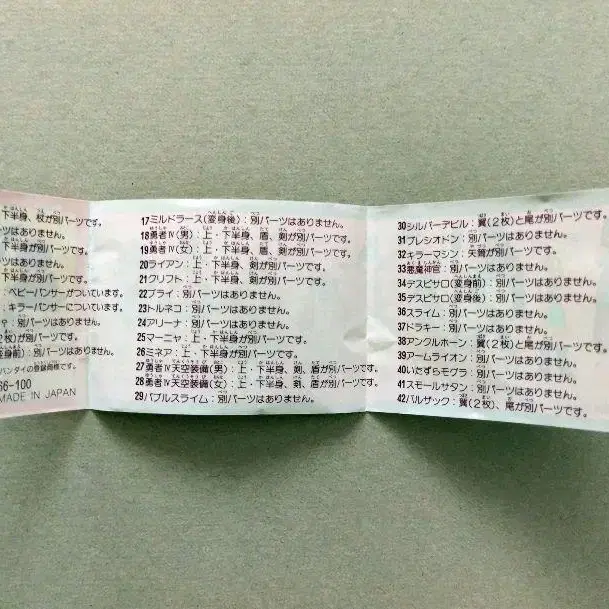 下半身、杖が別パーツです。
ーツはありません。
下半身が別パーツです。
パーツはありません。
下半身、剣が別パーツです。
：ベビーパンサーがついています。
：キラーパンサーについています。
：別パーツはありません。
枚)が別パーツです。
身前)：別パーツはありません。
バンダイの登録商標です。
66-100
MADE IN JAPAN
17ミルドラース(変身後)：別パーツはありません。
18勇者Ⅳ(男)：上・下半身、盾、剣が別パーツです。
19勇者Ⅳ(女)：上・下半身、盾、剣が別パーツです。
20ライアン：上・下半身、剣が別パーツです。
21クリフト：上・下半身、剣が別パーツです。
22ブライ：別パーツはありません。
23トルネコ：別パーツはありません。
24アリーナ：別パーツはありません。
25マーニャ：上・下半身が別パーツです。
26ミネア：上・下半身が別パーツです。
27勇者Ⅳ天空装備(男)：上・下半身、剣、盾が別パーツです。
28勇者Ⅳ天空装備(女)：上・下半身、剣、盾が別パーツです。
29バブルスライム：別パーツはありません。
30シルバーデビル：翼(2枚)と尾が別パーツです。
31プレシオドン：別パーツはありません。
32キラーマシン：矢筒が別パーツです。
33悪魔神官：別パーツはありません。
34デスピサロ(変身前)：別パーツはありません。
35デスピサロ(変身後)：別パーツはありません。
36スライム：別パーツはありません。
37ドラキー：別パーツはありません。
38アンクルホーン：翼(2枚)と尾が別パーツです。
39アームライオン：別パーツはありません。
40いたずらモグラ：別パーツはありません。
41スモールサタン：別パーツはありません。
42バルザック：翼(2枚)、尾が別パーツです。